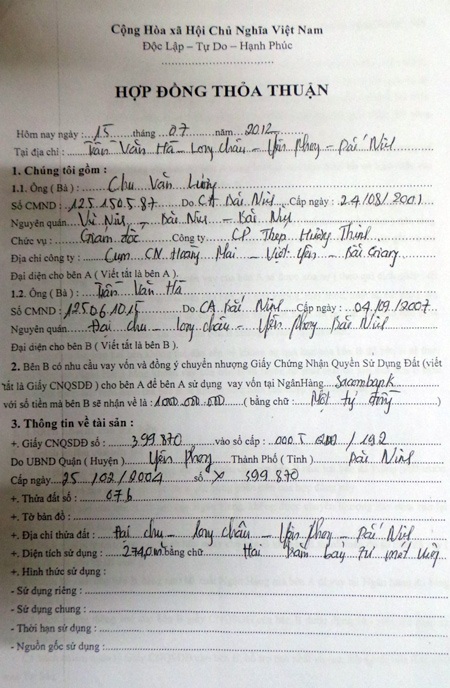 Cộng Hòa xã Hội Chủ Nghĩa Việt Nam
Độc Lập – Tự Do – Hạnh Phúc
HỢP ĐỒNG THỎA THUẬN
Hôm nay ngày : 15 tháng 07 năm 2012
Tại địa chỉ : Trần Văn Hà – Long Châu – Yên Phong – Bắc Ninh
1. Chúng tôi gồm :
1.1. Ông ( Bà ) : Chu Văn Lương
Số CMND : 125.150.587 Do CA Bắc Ninh Cấp ngày : 24/08/2001
Nguyên quán Bắc Ninh
Chức vụ : Giám đốc Công ty CP Thép Hương Thịnh
Địa chỉ công ty : Cụm CN Hoàng Mai – Việt Yên – Bắc Giang
Đại diện cho bên A ( Viết tắt là bên A ).
1.2. Ông ( Bà ) : Trần Văn Hà
Số CMND : 125061015 Do CA Bắc Ninh Cấp ngày : 04/09/2007
Nguyên quán Đại chu – long châu – Yên Phong Bắc Ninh
Đại diện cho bên B ( Viết tắt là bên B ).
2. Bên B có nhu cầu vay vốn và đồng ý chuyển nhượng Giấy Chứng Nhận Quyền Sử Dụng Đất (viết
tắt là Giấy CNQSDĐ ) cho bên A để bên A sử dụng vay vốn tại NgânHàng Sacombank
với số tiền mà bên B sẽ nhận về là : 1000.000.000 ( bằng chữ : Một tỷ đồng )
3. Thông tin về tài sản :
+. Giấy CNQSDĐ số : 399.870 vào sổ cấp : /192
Do UBND Quận ( Huyện ) Yên Phong Thành Phố ( Tỉnh ) Bắc Ninh
Cấp ngày 25/02/2004 số X 399.870
+. Thửa đất số : 076
+. Tờ bản đồ :
+. Địa chỉ thửa đất : Đại chu – long châu – Yên Phong – Bắc Ninh
+. Diện tích sử dụng : 274,0 m² bằng chữ Hai trăm bảy tư mét vuông
+. Hình thức sử dụng :
- Sử dụng riêng :
- Sử dụng chung :
- Thời hạn sử dụng :
- Nguồn gốc sử dụng :